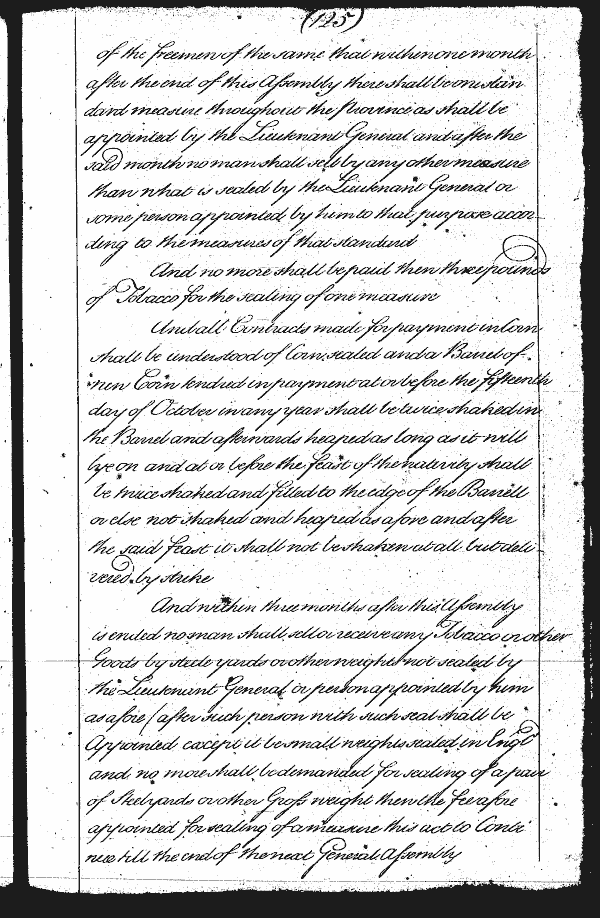 (125)
of the freemen of the same that within one month
after the end of this Assembly there shall be one stan
dard measure throughout the Province as shall be
appointed by the Lieutenant General and after the
said month no man shall sell by any other measure
than what is sealed by the Lieutenant General or
some person appointed by him to that purpose accor-
ding to the measures of that standard
And no more shall be paid then three pounds
of Tobacco for the sealing of one measure
And all Contracts made for payment in Corn
shall be understood of Corn sealed and a Barrel of
new Corn tendred in payment at or before the fifteenth
day of October in any year shall be twice shaked in
the Barrel and afterwards heaped as long as it will
lye on and at or before the feast of the nativity shall
be twice shaked and filled to the edge of the Barrell
or else not shaked and heaped as afore and after
the said feast it shall not be shaken at all but deli-
vered by strike
And within three months after this Assembly
is ended no man shall sell or receive any Tobacco or other
Goods by steele yards or other weight not sealed by
the Lieutenant General or person appointed by him
as afore (after such person with such seal shall be
Appointed except it be small weights sealed in Engld
and no more shall be demanded for sealing of a pair
of Steelyards or other Gross weight then the fee afore
appointed for sealing of a measure this act to Conti
nue till the end of the next General Assembly